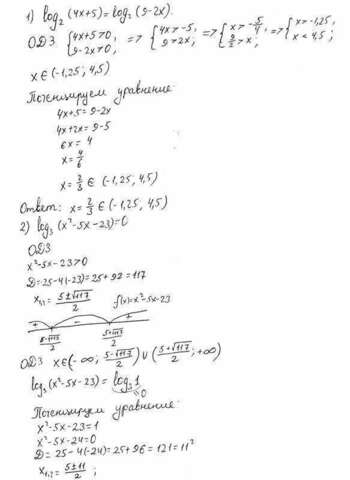 1) log₂ (4x+5) = log₂ (9-2x).
ОДЗ { 4x+5>0, 9-2x>0, => { 4x>-5, 9>2x, => { x>-5/4, 9/2>x, => { x>-1,25, x<4,5;
x ∈ (-1,25; 4,5)
Потенцируем уравнение
4x+5=9-2x
4x+2x=9-5
6x = 4
x = 4/6
x = 2/3 ∈ (-1,25; 4,5)
Ответ: x = 2/3 ∈ (-1,25; 4,5)
2) log₃ (x²-5x-23)=0
ОДЗ
x²-5x-23>0
D=25-4(-23)=25+92=117
x₁,₂= (5±√117)/2 f(x)=x²-5x-23
+ - +
(5-√117)/2 (5+√117)/2
ОДЗ x∈(-∞; (5-√117)/2) ∪ ((5+√117)/2; +∞)
log₃ (x²-5x-23) = log₃ 1
=0
Потенцируем уравнение:
x²-5x-23=1
x²-5x-24=0
D = 25-4(-24)=25+96=121=11²
x₁,₂= (5±11)/2 ;